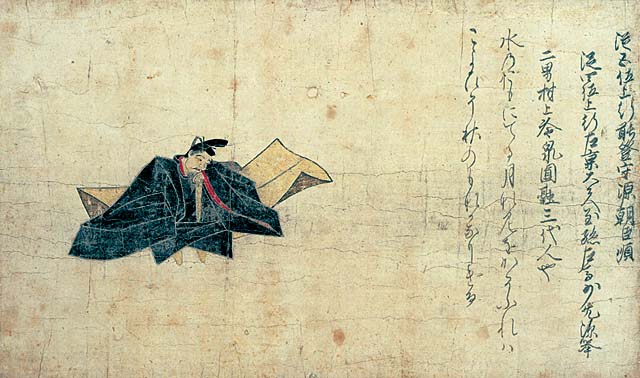 従五位上行能登守源朝臣順
従四位上行左京大夫至孫左馬允源挙
二男村上冷泉圓融三代人也
水乃おもにてる月なみをかそふれハ
こよひそ秋のもなかなりける